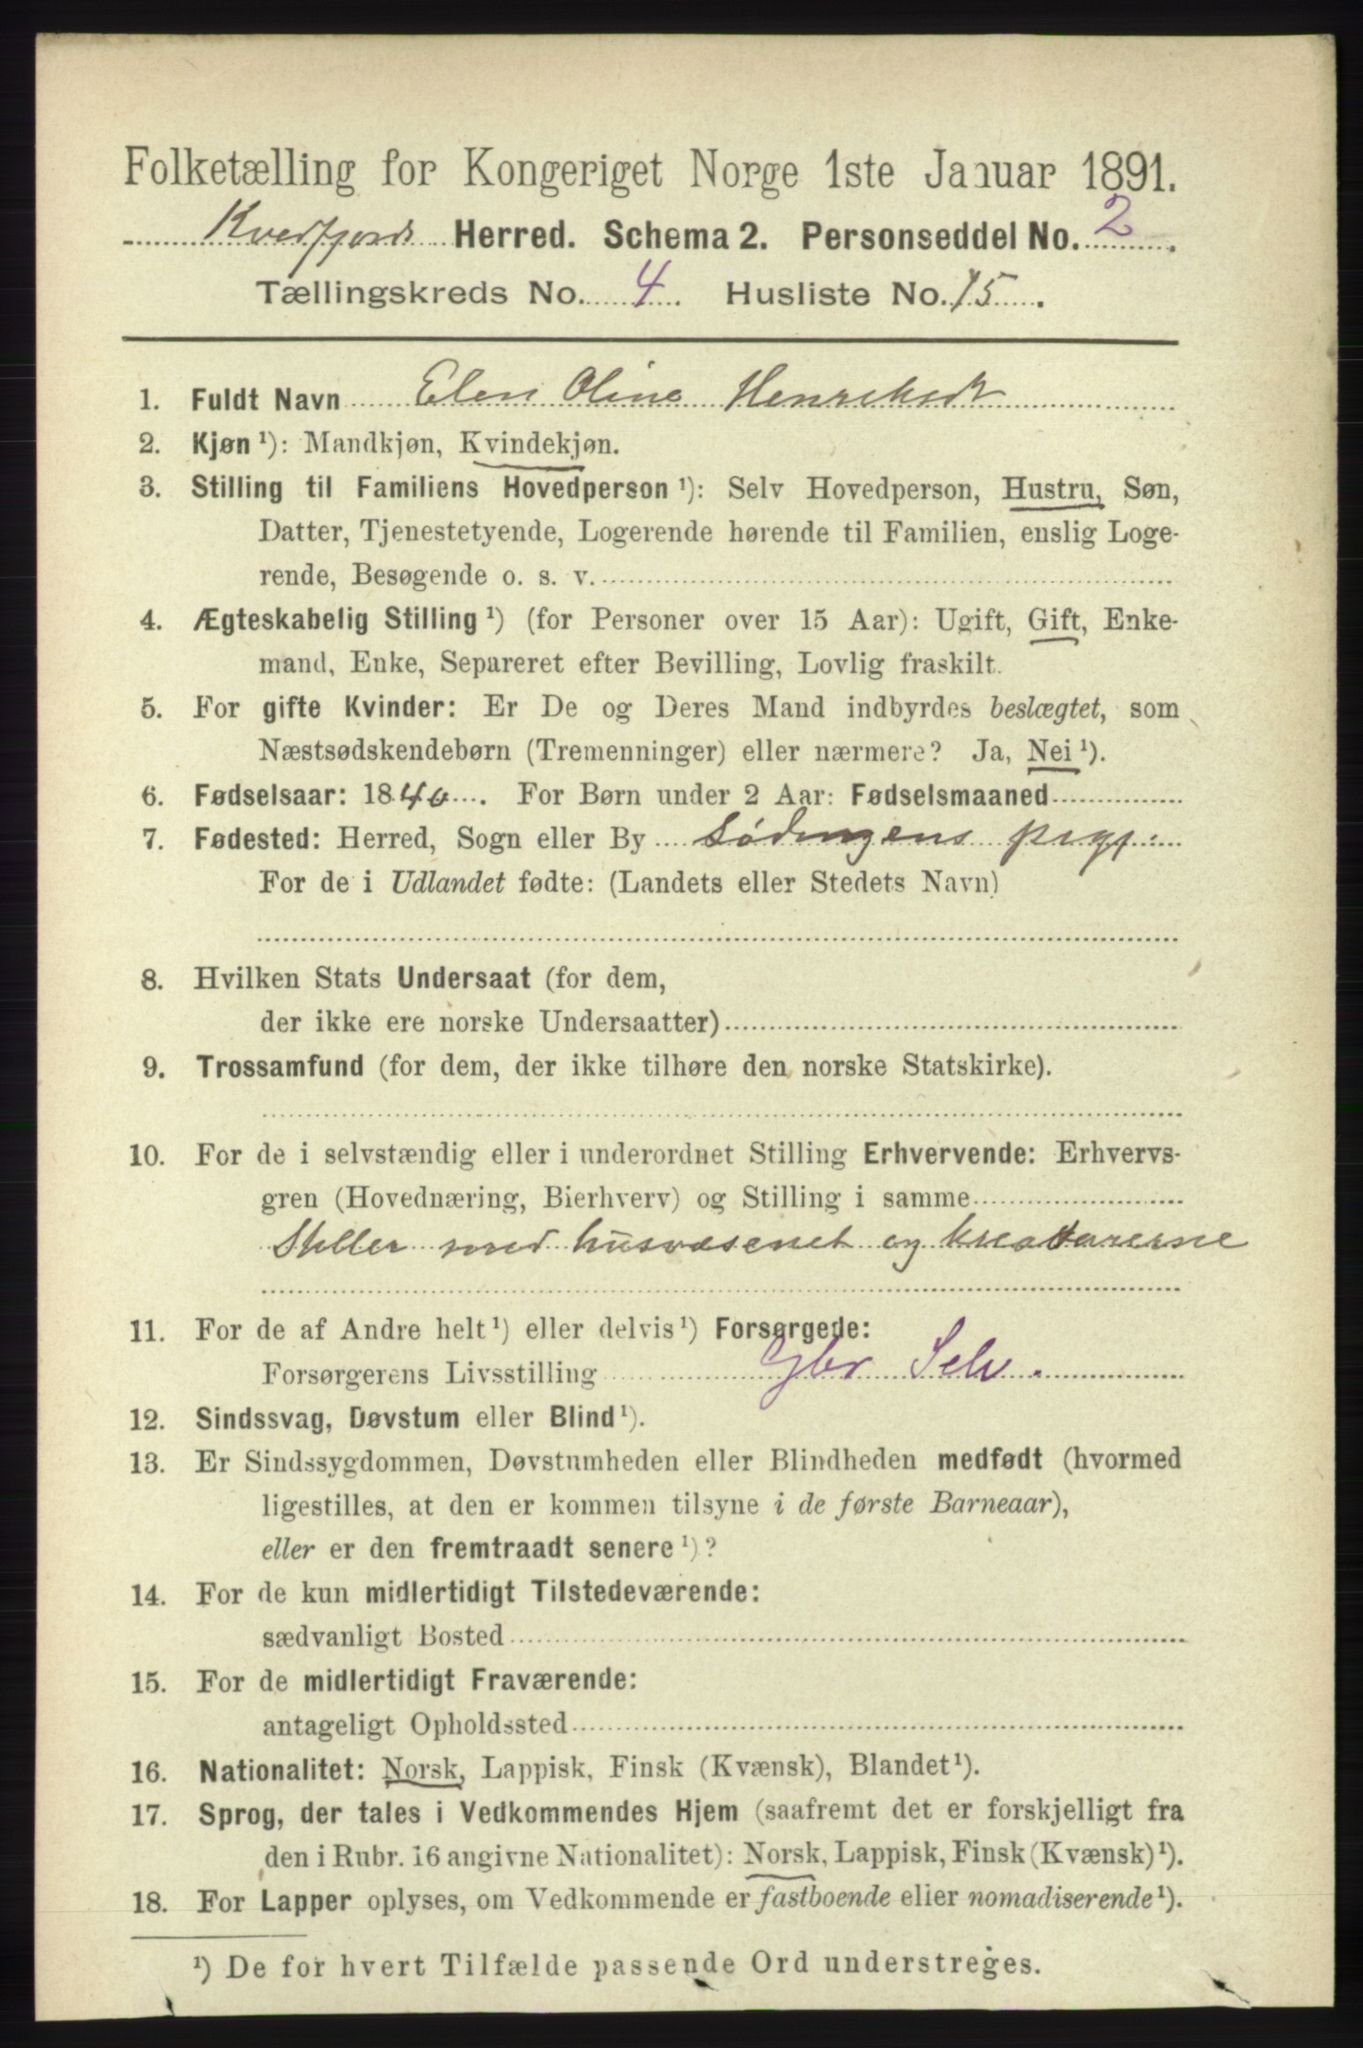 Folketælling for Kongeriget Norge 1ste Januar 1891.
Kvedfjords Herred. Schema 2. Personseddel No. 2.
Tællingskreds No. 4. Husliste No. 15.
1. Fuldt Navn Elen Oline
2. Kjøn ¹): Mandkjøn, Kvindekjøn.
3. Stilling til Familiens Hovedperson ¹): Selv Hovedperson, Hustru, Søn,
Datter, Tjenestetyende, Logerende hørende til Familien, enslig Loge-
rende, Besøgende o. s. v.
4. Ægteskabelig Stilling ¹) (for Personer over 15 Aar): Ugift, Gift, Enke-
mand, Enke, Separeret efter Bevilling, Lovlig fraskilt.
5. For gifte Kvinder: Er De og Deres Mand indbyrdes beslægtet, som
Næstsødskendebørn (Tremenninger) eller nærmere? Ja, Nei ¹).
6. Fødselsaar: 1840. For Børn under 2 Aar: Fødselsmaaned
7. Fødested: Herred, Sogn eller By Lødingens prgj:
For de i Udlandet fødte: (Landets eller Stedets Navn)
8. Hvilken Stats Undersaat (for dem,
der ikke ere norske Undersaatter)
9. Trossamfund (for dem, der ikke tilhøre den norske Statskirke).
10. For de i selvstændig eller i underordnet Stilling Erhvervende: Erhvervs-
gren (Hovednæring, Bierhverv) og Stilling i samme
Steller med husvæsenet og kreaturerne
11. For de af Andre helt ¹) eller delvis ¹) Forsørgede:
Forsørgerens Livsstilling Gbr Selv.
12. Sindssvag, Døvstum eller Blind ¹).
13. Er Sindssygdommen, Døvstumheden eller Blindheden medfødt (hvormed
ligestilles, at den er kommen tilsyne i de første Barneaar),
eller er den fremtraadt senere ¹)?
14. For de kun midlertidigt Tilstedeværende:
sædvanligt Bosted
15. For de midlertidigt Fraværende:
antageligt Opholdssted
16. Nationalitet: Norsk, Lappisk, Finsk (Kvænsk), Blandet ¹).
17. Sprog, der tales i Vedkommendes Hjem (saafremt det er forskjelligt fra
den i Rubr. 16 angivne Nationalitet): Norsk, Lappisk, Finsk (Kvænsk) ¹).
18. For Lapper oplyses, om Vedkommende er fastboende eller nomadiserende ¹).
¹) De for hvert Tilfælde passende Ord understreges.